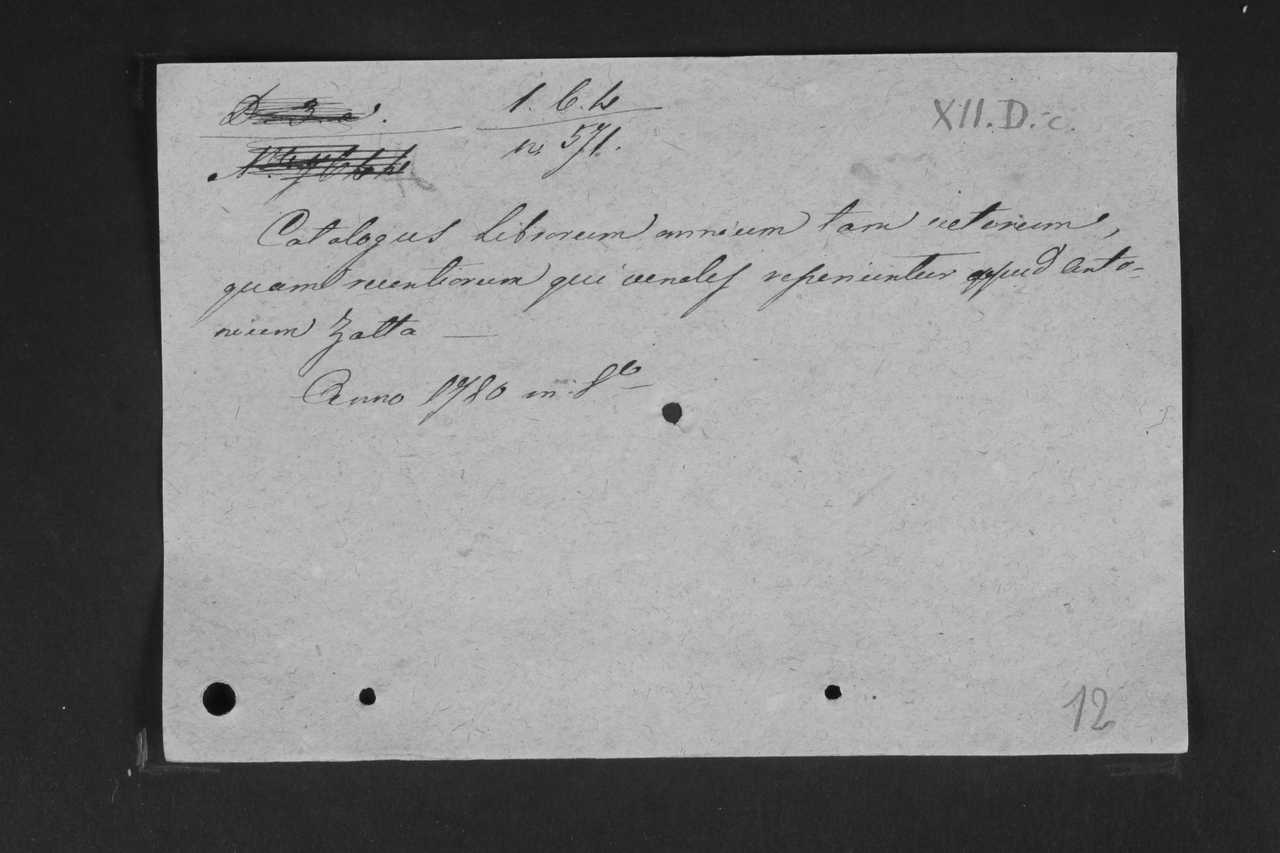 D. 3. c.
1. C. 4
XII. D. c.
n. 571.
Catalogus librorum omnium tam veterum,
quam recentiorum qui venales reperiuntur apud Anto-
nium Zatta —
Anno 1780 in 8o
12